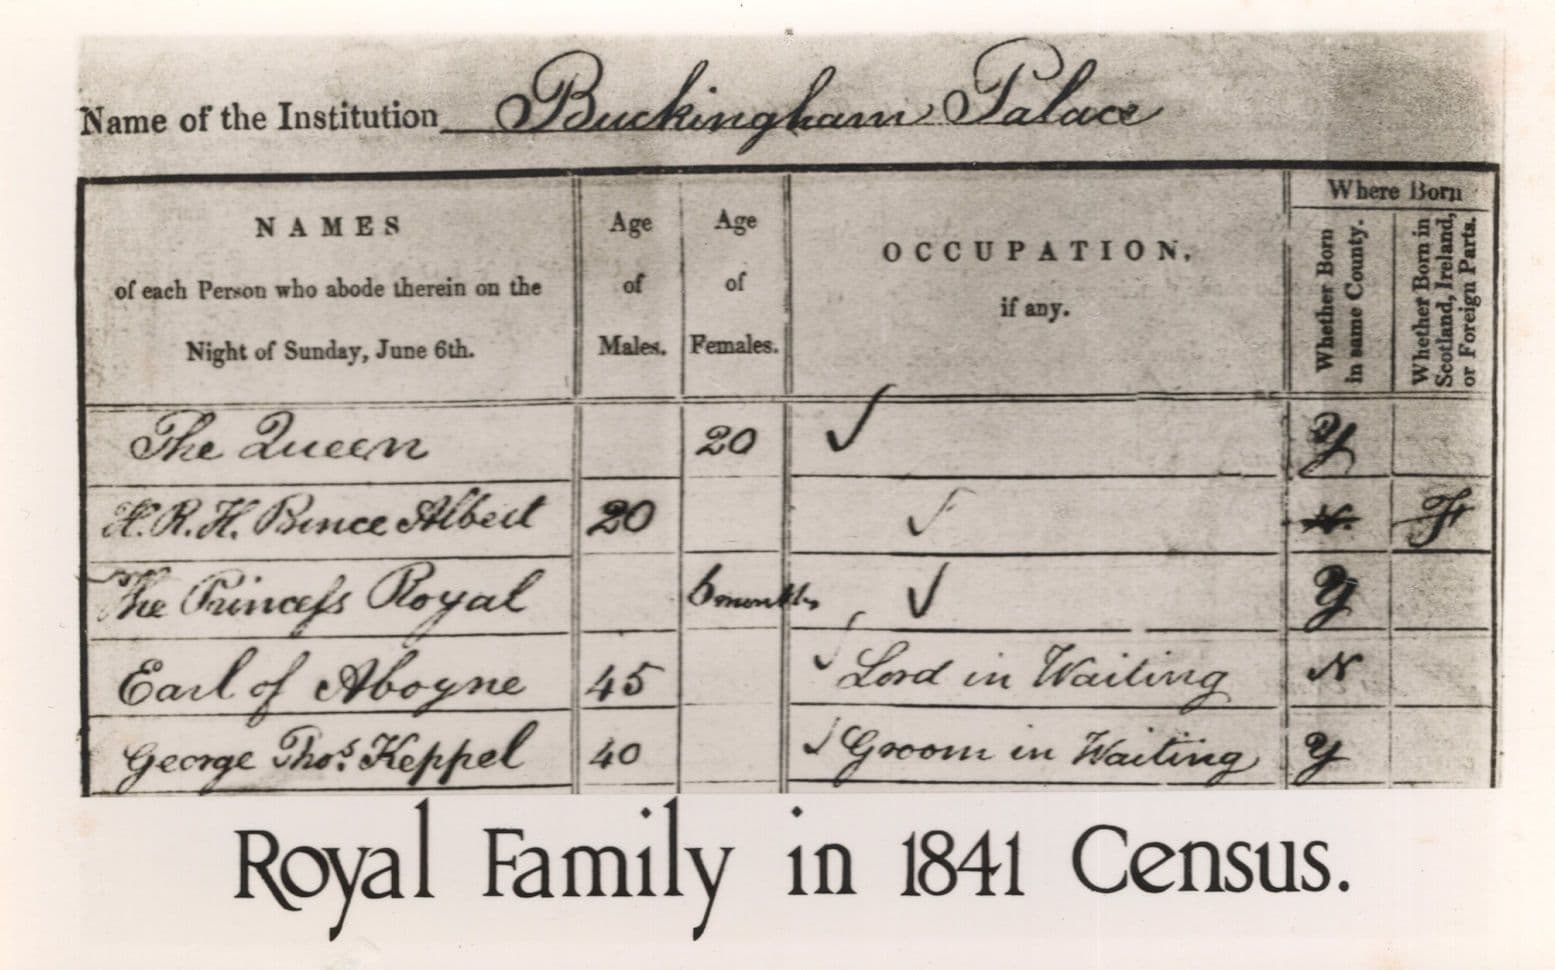 Name of the Institution Buckingham Palace
NAMES
of each Person who abode therein on the
Night of Sunday, June 6th.
Age
of
Males.
Age
of
Females.
OCCUPATION,
if any.
Where Born
Whether Born
in same County.
Whether Born in
Scotland, Ireland,
or Foreign Parts.
The Queen 20 Y
H.R.H. Prince Albert 20 N. F
The Princess Royal 6 months Y
Earl of Aboyne 45 Lord in Waiting N
George Thos. Keppel 40 Groom in Waiting Y
Royal Family in 1841 Census.